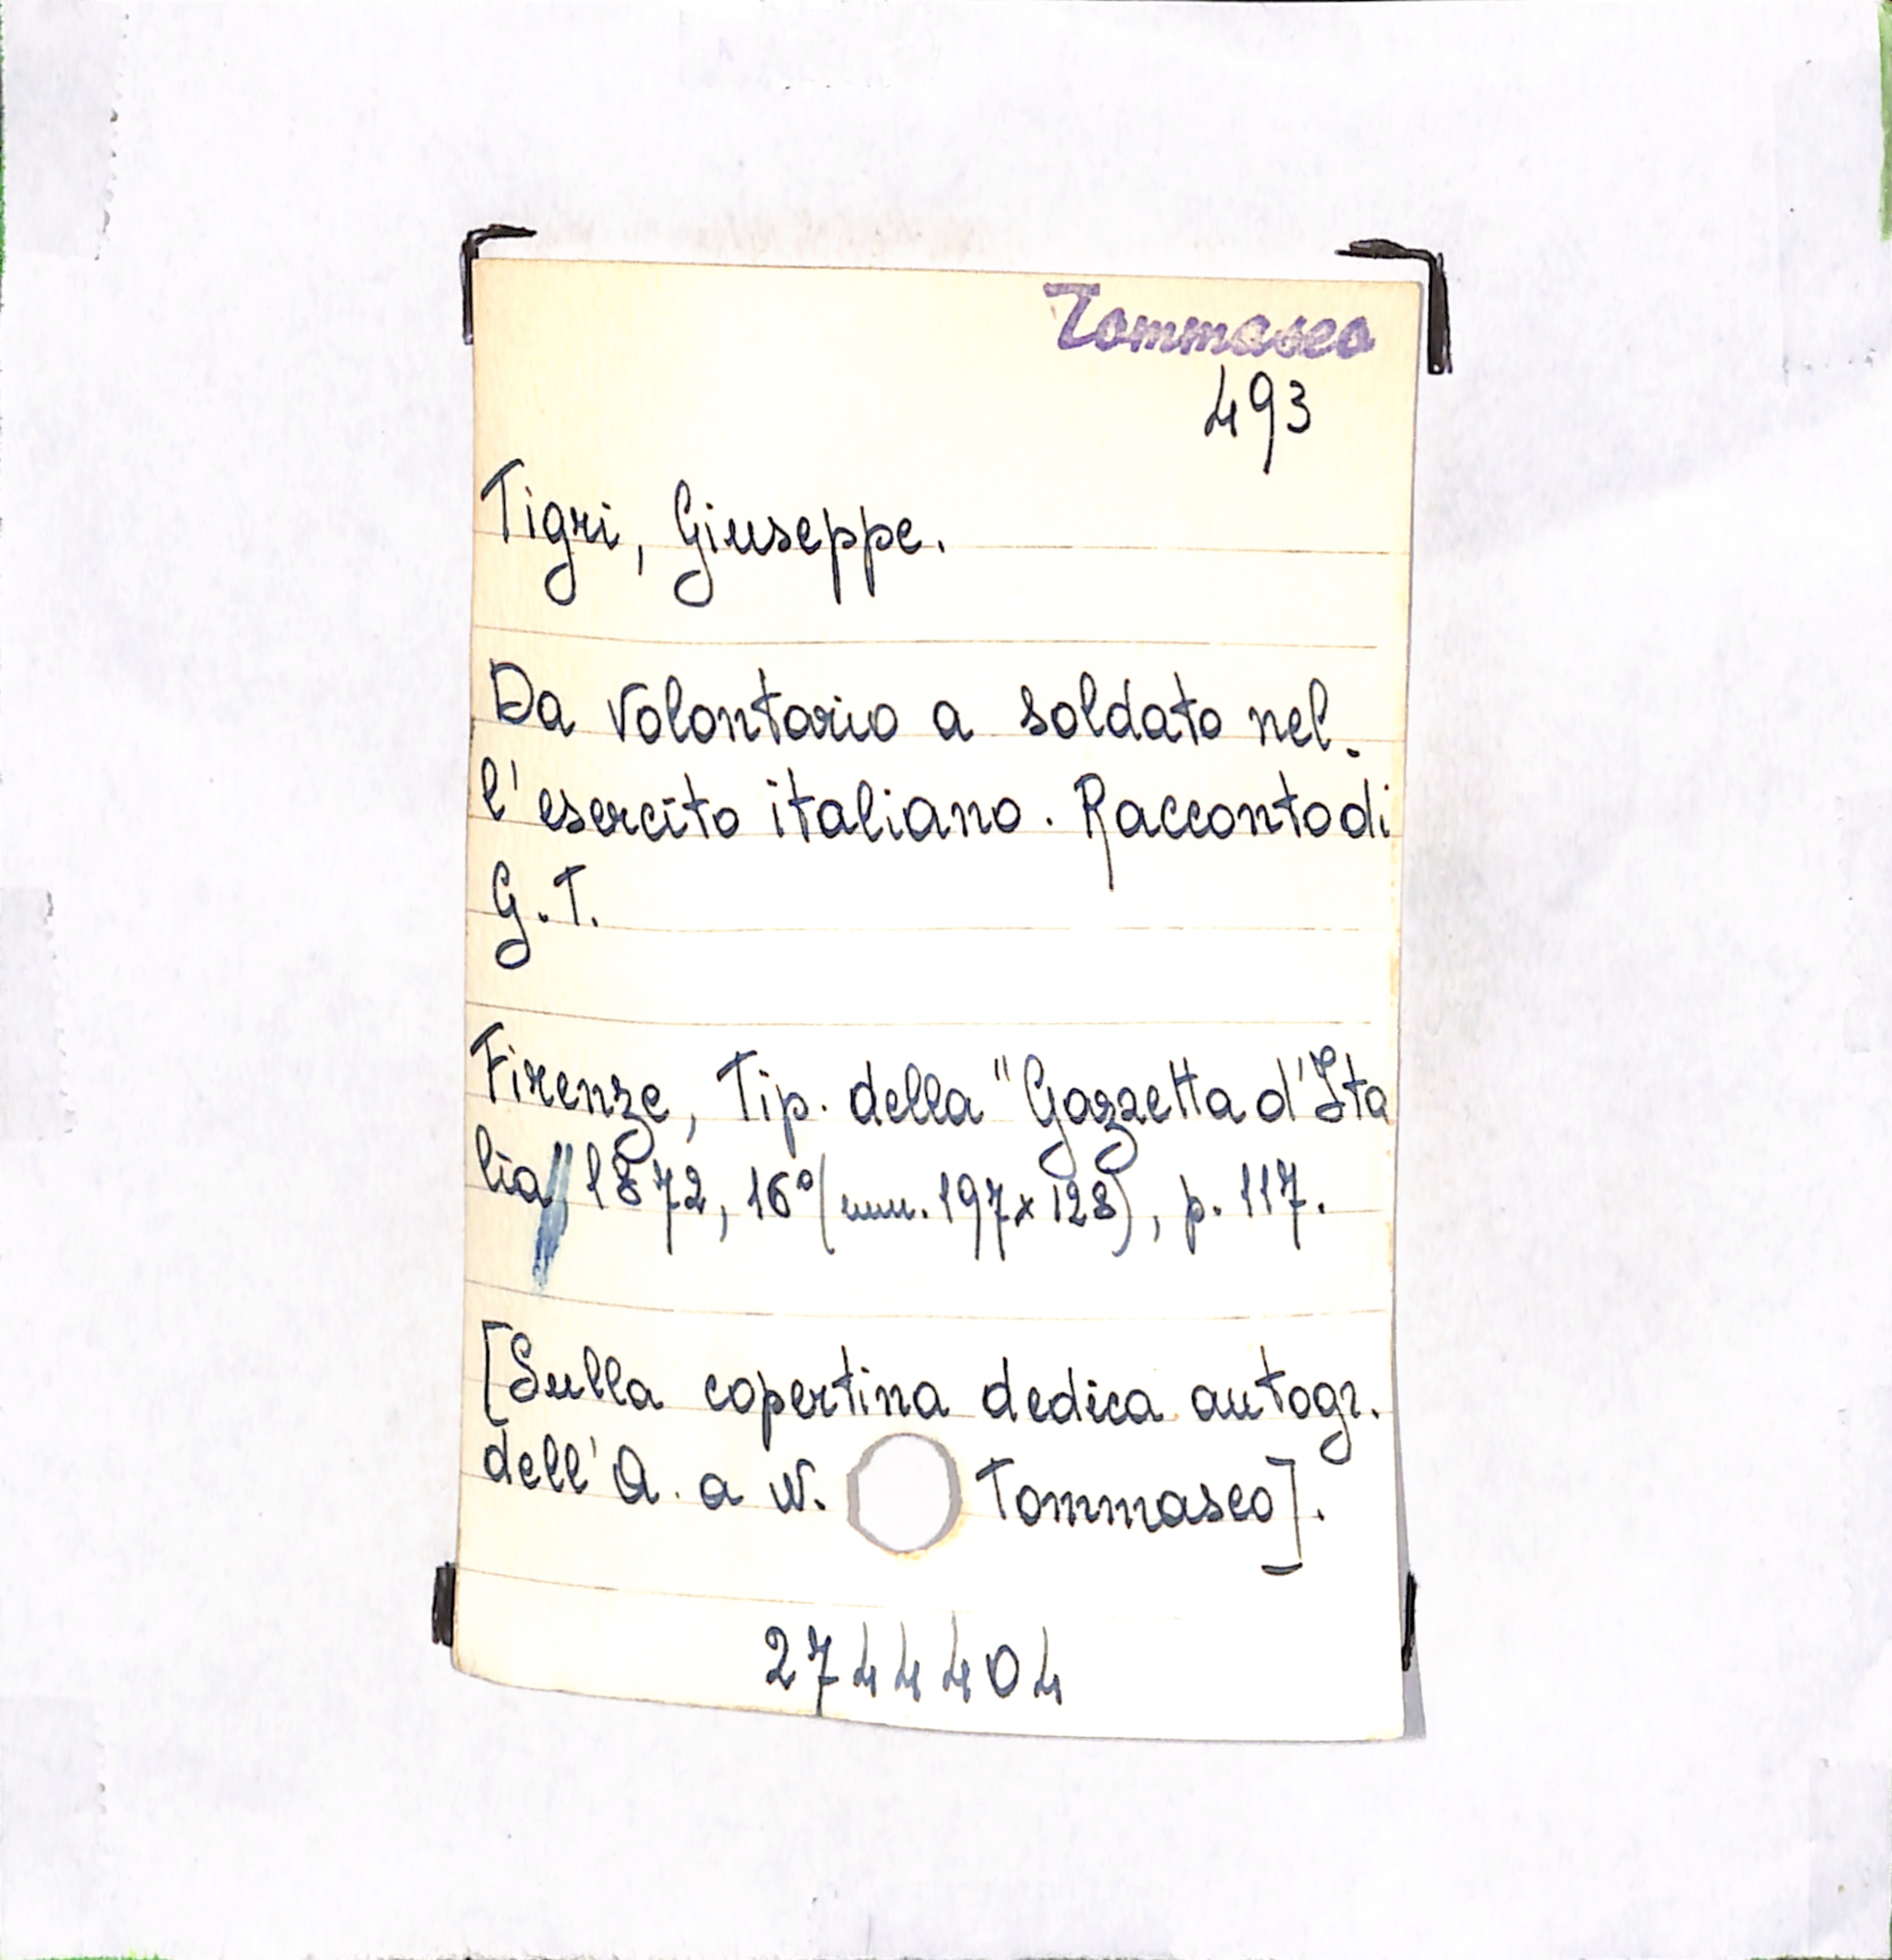 Tommaseo
493
Tigri, Giuseppe.
Da volontario a soldato nel-
l'esercito italiano. Racconto di
G.T.
Firenze, Tip. della "Gazzetta d'Ita
lia" 1872, 16° (mm. 197x128), p. 117.
[Sulla copertina dedica autogr.
dell'A. a N. Tommaseo].
2744404